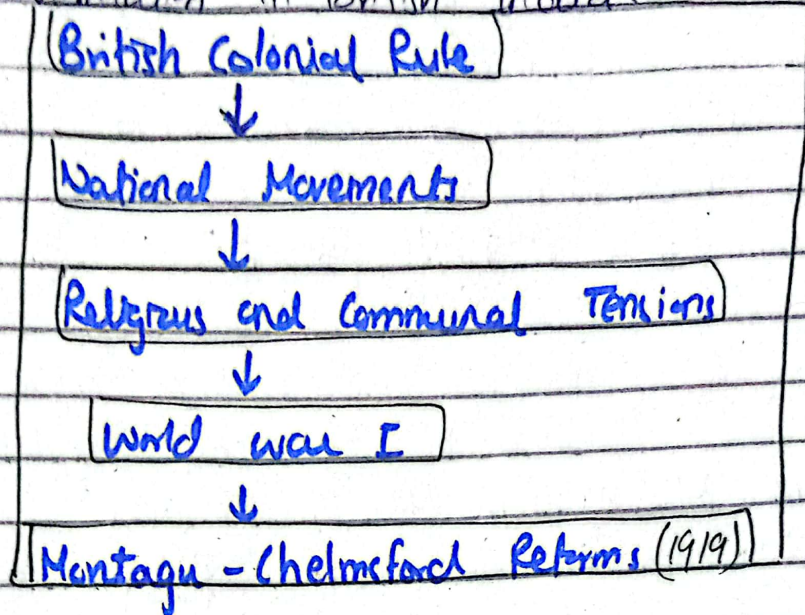 in British India
British Colonial Rule
↓
National Movements
↓
Religious and Communal Tensions
↓
World War I
↓
Montagu - Chelmsford Reforms (1919)